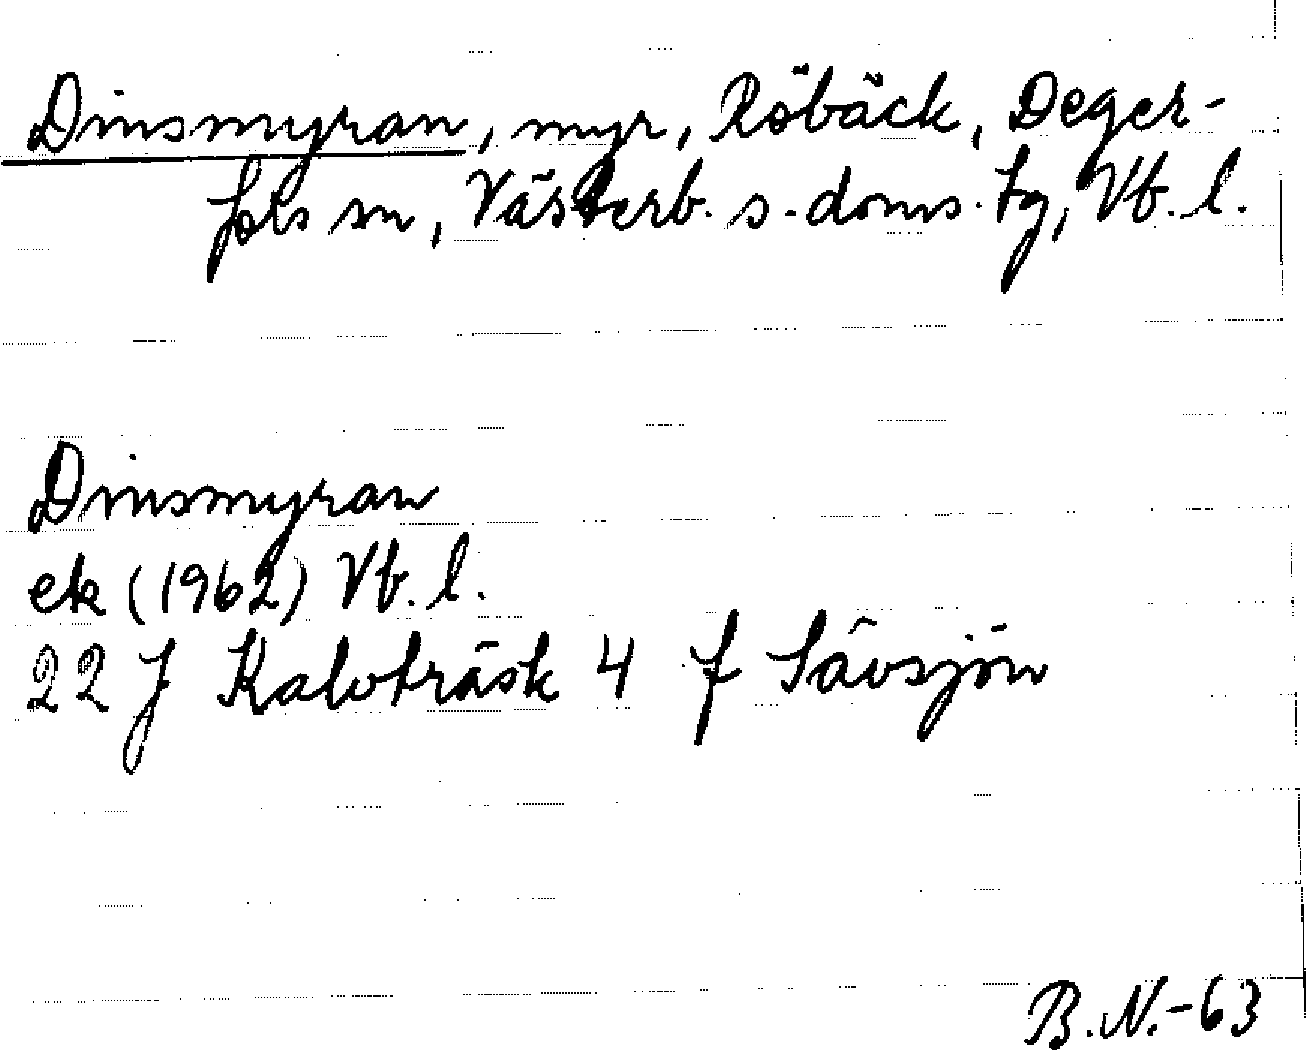 Dinsmyran, myr, Röbäck, Deger-
fors sn, Västerb. s. doms. tg, Vb. l.
Dinsmyran
ek (1962) Vb. l.
22 J Kalvträsk 4 f Sävsjön
B.N.-63